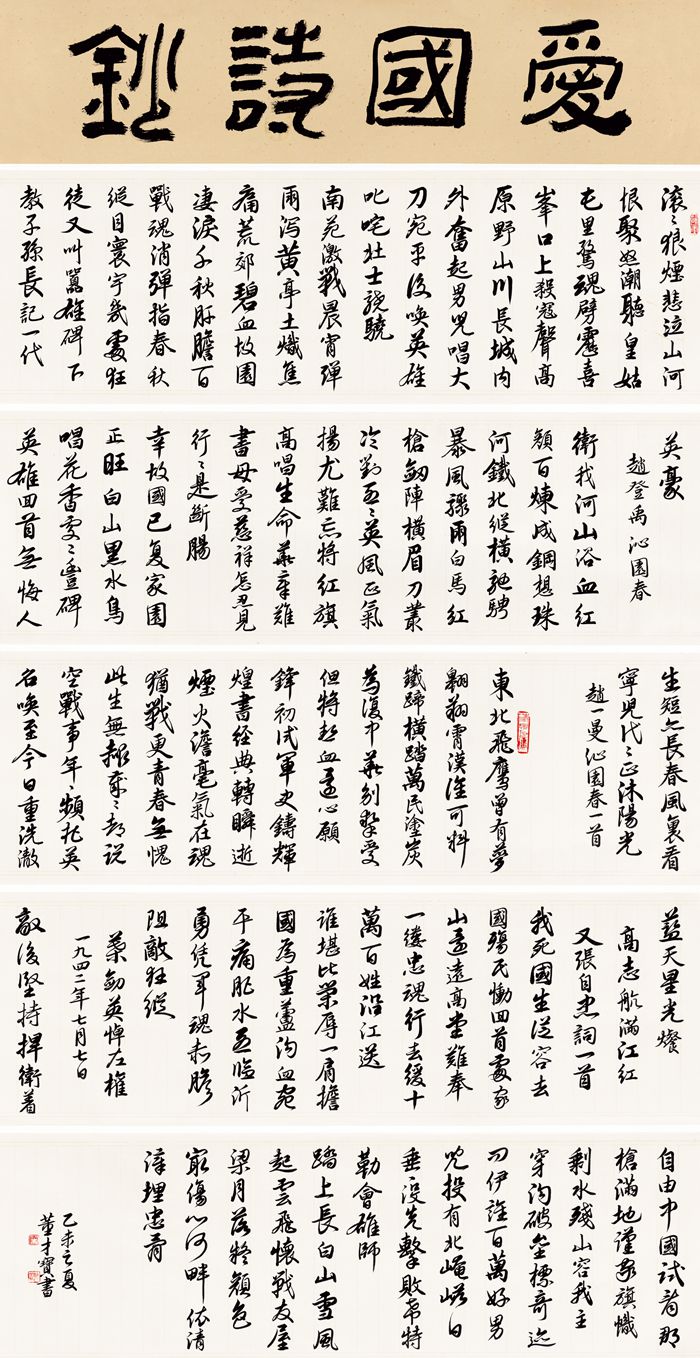 愛國詩鈔
滾〻狼煙悲泣山河
恨聚怒潮聽皇姑
屯里驚魂劈靂喜
峯口上殺寇聲高
原野山川長城內
外奮起男兒唱大
刀宛平後喚英雄
叱咤壯士驍
南苑激戰晨宵彈
雨瀉黃亭土熾焦
痛荒郊碧血故園
淒淚千秋肝膽百
戰魂消彈指春秋
縱目寰宇幾處狂
徒又叫囂雄碑下
教子孫長記一代
英豪
趙登禹沁園春
衛我河山浴血紅
顏百煉成鋼想珠
河鐵北縱橫馳騁
暴風驟雨白馬紅
槍劍陣橫眉刀叢
冷對英風正氣
揚尤難忘將紅旗
高唱生命華章難
書母愛慈祥怎忍見
行〻是斷腸
幸故國已复家園
正旺白山黑水鳥
唱花香處〻豐碑
英雄回首無悔人
生短之長春風裏看
寧兒代〻正沐陽光
趙一曼沁園春一首
東北飛鷹曾有夢
翱翔霄漢誰可料
鐵蹄橫踏萬民塗炭
為復中華別摯愛
但將熱血遂心願
鋒初試軍史鑄輝
煌書經典轉瞬逝
煙火澹毫氣在魂
猶戰更青春無愧
此生無赧歲〻都說
空戰事年〻頻托英
名喚至今日重洗澈
藍天星光燦
高志航滿江紅
又張自忠詞一首
我死國生從容去
國殤民慟回首處家
山遙遠高堂難奉
一縷忠魂行去緩十
萬百姓沿江送
誰堪比榮辱一肩擔
國為重蘆沟血宛
平痛肥水臨沂
勇凭軍魂赤膽
阻敵狂縱
葉劍英悼左權
一九四二年七月七日
敵後堅持捍衛着
自由中國試看那
槍滿地謹嚴旗幟
剩水殘山容我主
穿沟破壘標奇迹
問伊誰百萬好男
兒投有北崦嵫日
垂沒先擊敗希特
勒會雄師
踏上長白山雪風
起雲飛懷戰友屋
梁月落疑顏色
最傷心河畔依清
漳埋忠骨
乙未之夏
董才寶書